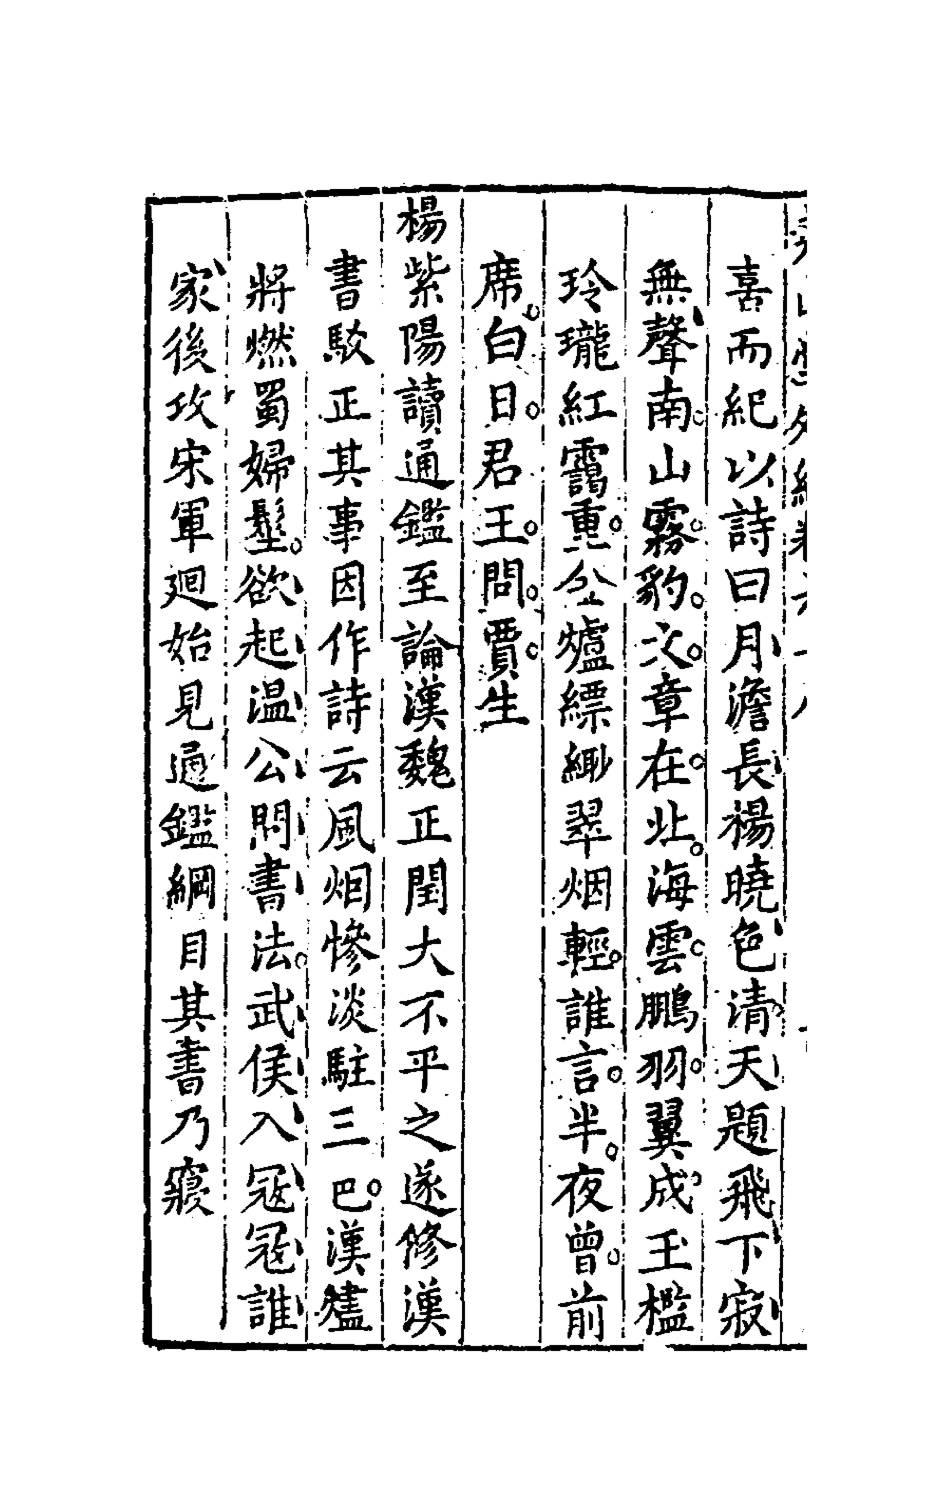 喜而紀以詩曰月澹長楊曉色清天題飛下寂
無聲南山霧豹文章在北海雲鵬羽翼成玉檻
玲瓏紅靄重金爐縹緲翠烟輕誰言半夜曾前
席白日君王問賈生
楊紫陽讀通鑑至論漢魏正閏大不平之遂修漢
書駁正其事因作詩云風烟慘淡駐三巴漢燼
將燃蜀婦髽欲起温公問書法武侯入冦冦誰
家後攻宋軍廻始見通鑑綱目其書乃寢